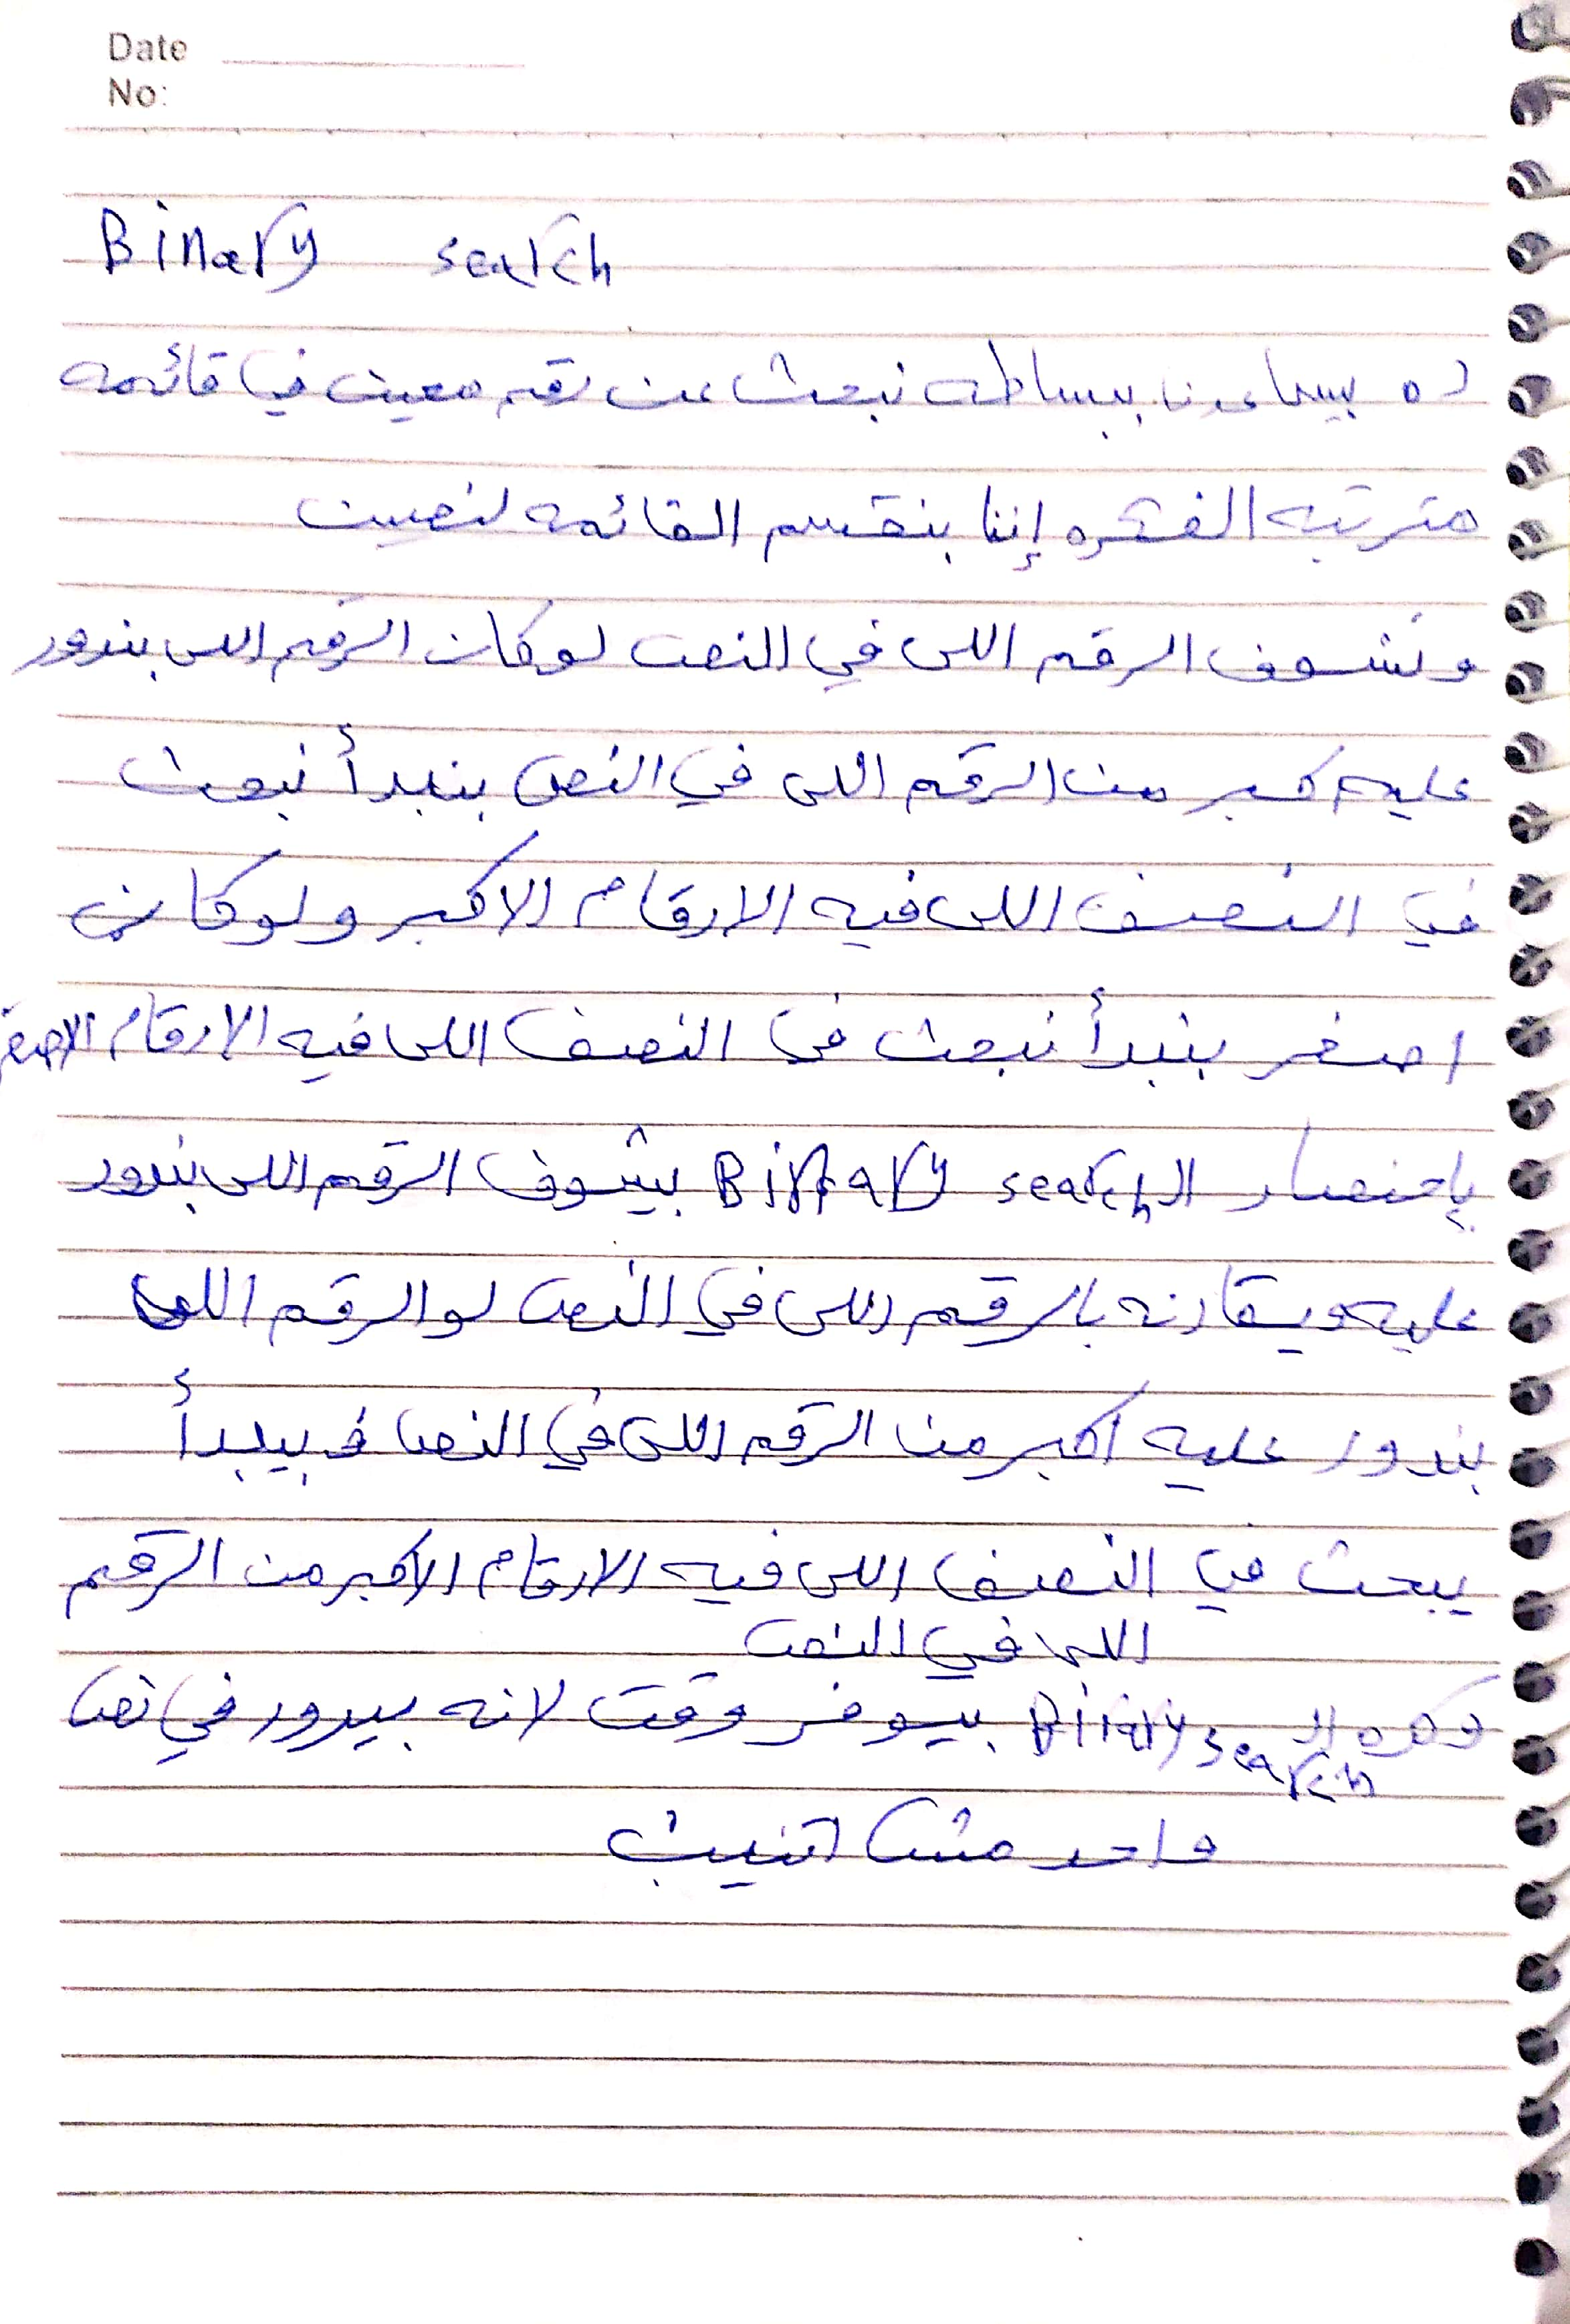 Date
No:
Binary search
ده بيساعدنا ببساطه نبحث عن رقم معين في قائمه
مترتبه الفكره إننا بنقسم القائمه لنصين
ونشوف الرقم اللى في النص لو كان الرقم اللى بندور
عليه كبر من الرقم اللى في النص بنبدأ نبحث
في النصف اللى فيه الارقام الاكبر ولو كان
اصغر بنبدأ نبحث في النصف اللى فيه الارقام الاصغر
بإختصار الـ Binary search بيشوف الرقم اللى بندور
عليه ويقارنه بالرقم اللى في النص لو الرقم اللى
بندور عليه اكبر من الرقم اللى في النص فبيبدأ
يبحث في النصف اللى فيه الارقام الاكبر من الرقم
اللى في النص
فكره الـ Binary search بيوفر وقت لانه بيدور في نص
واحد مش اتنين